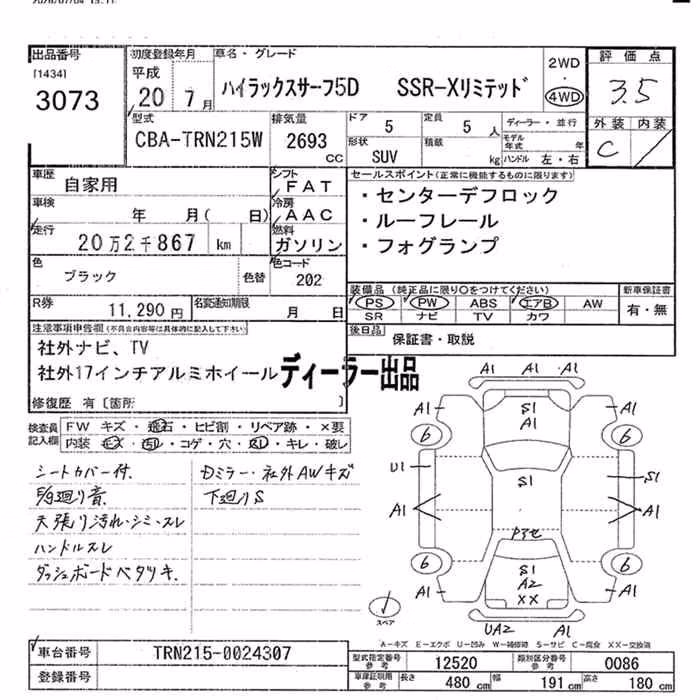 出品番号
[1434]
3073
初度登録年月
平成
20 7月
車名・グレード
ハイラックスサーフ5D SSR-Xリミテッド
2WD
・
4WD
評価点
3.5
外装 内装
C
型式
CBA-TRN215W
排気量
2693
CC
ドア 5
形状
SUV
定員 5 人
積載 kg
ディーラー・並行
モデル年式 年
ハンドル 左・右
車歴
自家用
車検
年 月( 日)
走行
20万2千867 km
色
ブラック
色替
R券
11,290円
名変通知期限
月 日
シフト
FAT
冷房
AAC
燃料
ガソリン
色コード
202
セールスポイント(正常に機能するものに限ります)
・センターデフロック
・ルーフレール
・フォグランプ
装備品 (純正品に限り○をつけてください)
PS PW ABS エアB AW
SR ナビ TV カワ
新車保証書
有・無
後日品
保証書・取説
注意事項申告欄(不具合内容等は具体的に記入して下さい)
社外ナビ、TV
社外17インチアルミホイール
ディーラー出品
修復歴 有〔箇所 〕
検査員
記入欄
FW キズ・飛石・ヒビ割・リペア跡・×要
内装 ・ ・コゲ・穴・ ・キレ・破し
シートカバー付.
廻り音
天張り汚れ・シミ・スレ
ハンドルスレ
ダッシュボードベタツキ.
Dミラー・社外AWキズ
下廻りS
A1 A1 A1
A1 S1 A1
A1
6 6
U1 S1 S1
A1 A1
アセ
6 6
S1
A1 A2 A1
XX
UA2 A1
スペア
A-キズ E-エクボ U-凹み W-補修跡 S-サビ C-腐食 XX-交換済
車台番号
TRN215-0024307
登録番号
型式指定番号
参考
12520
類別区分番号
参考
0086
車庫証明用
参考
長さ 480 cm 幅 191 cm 高さ 180 cm